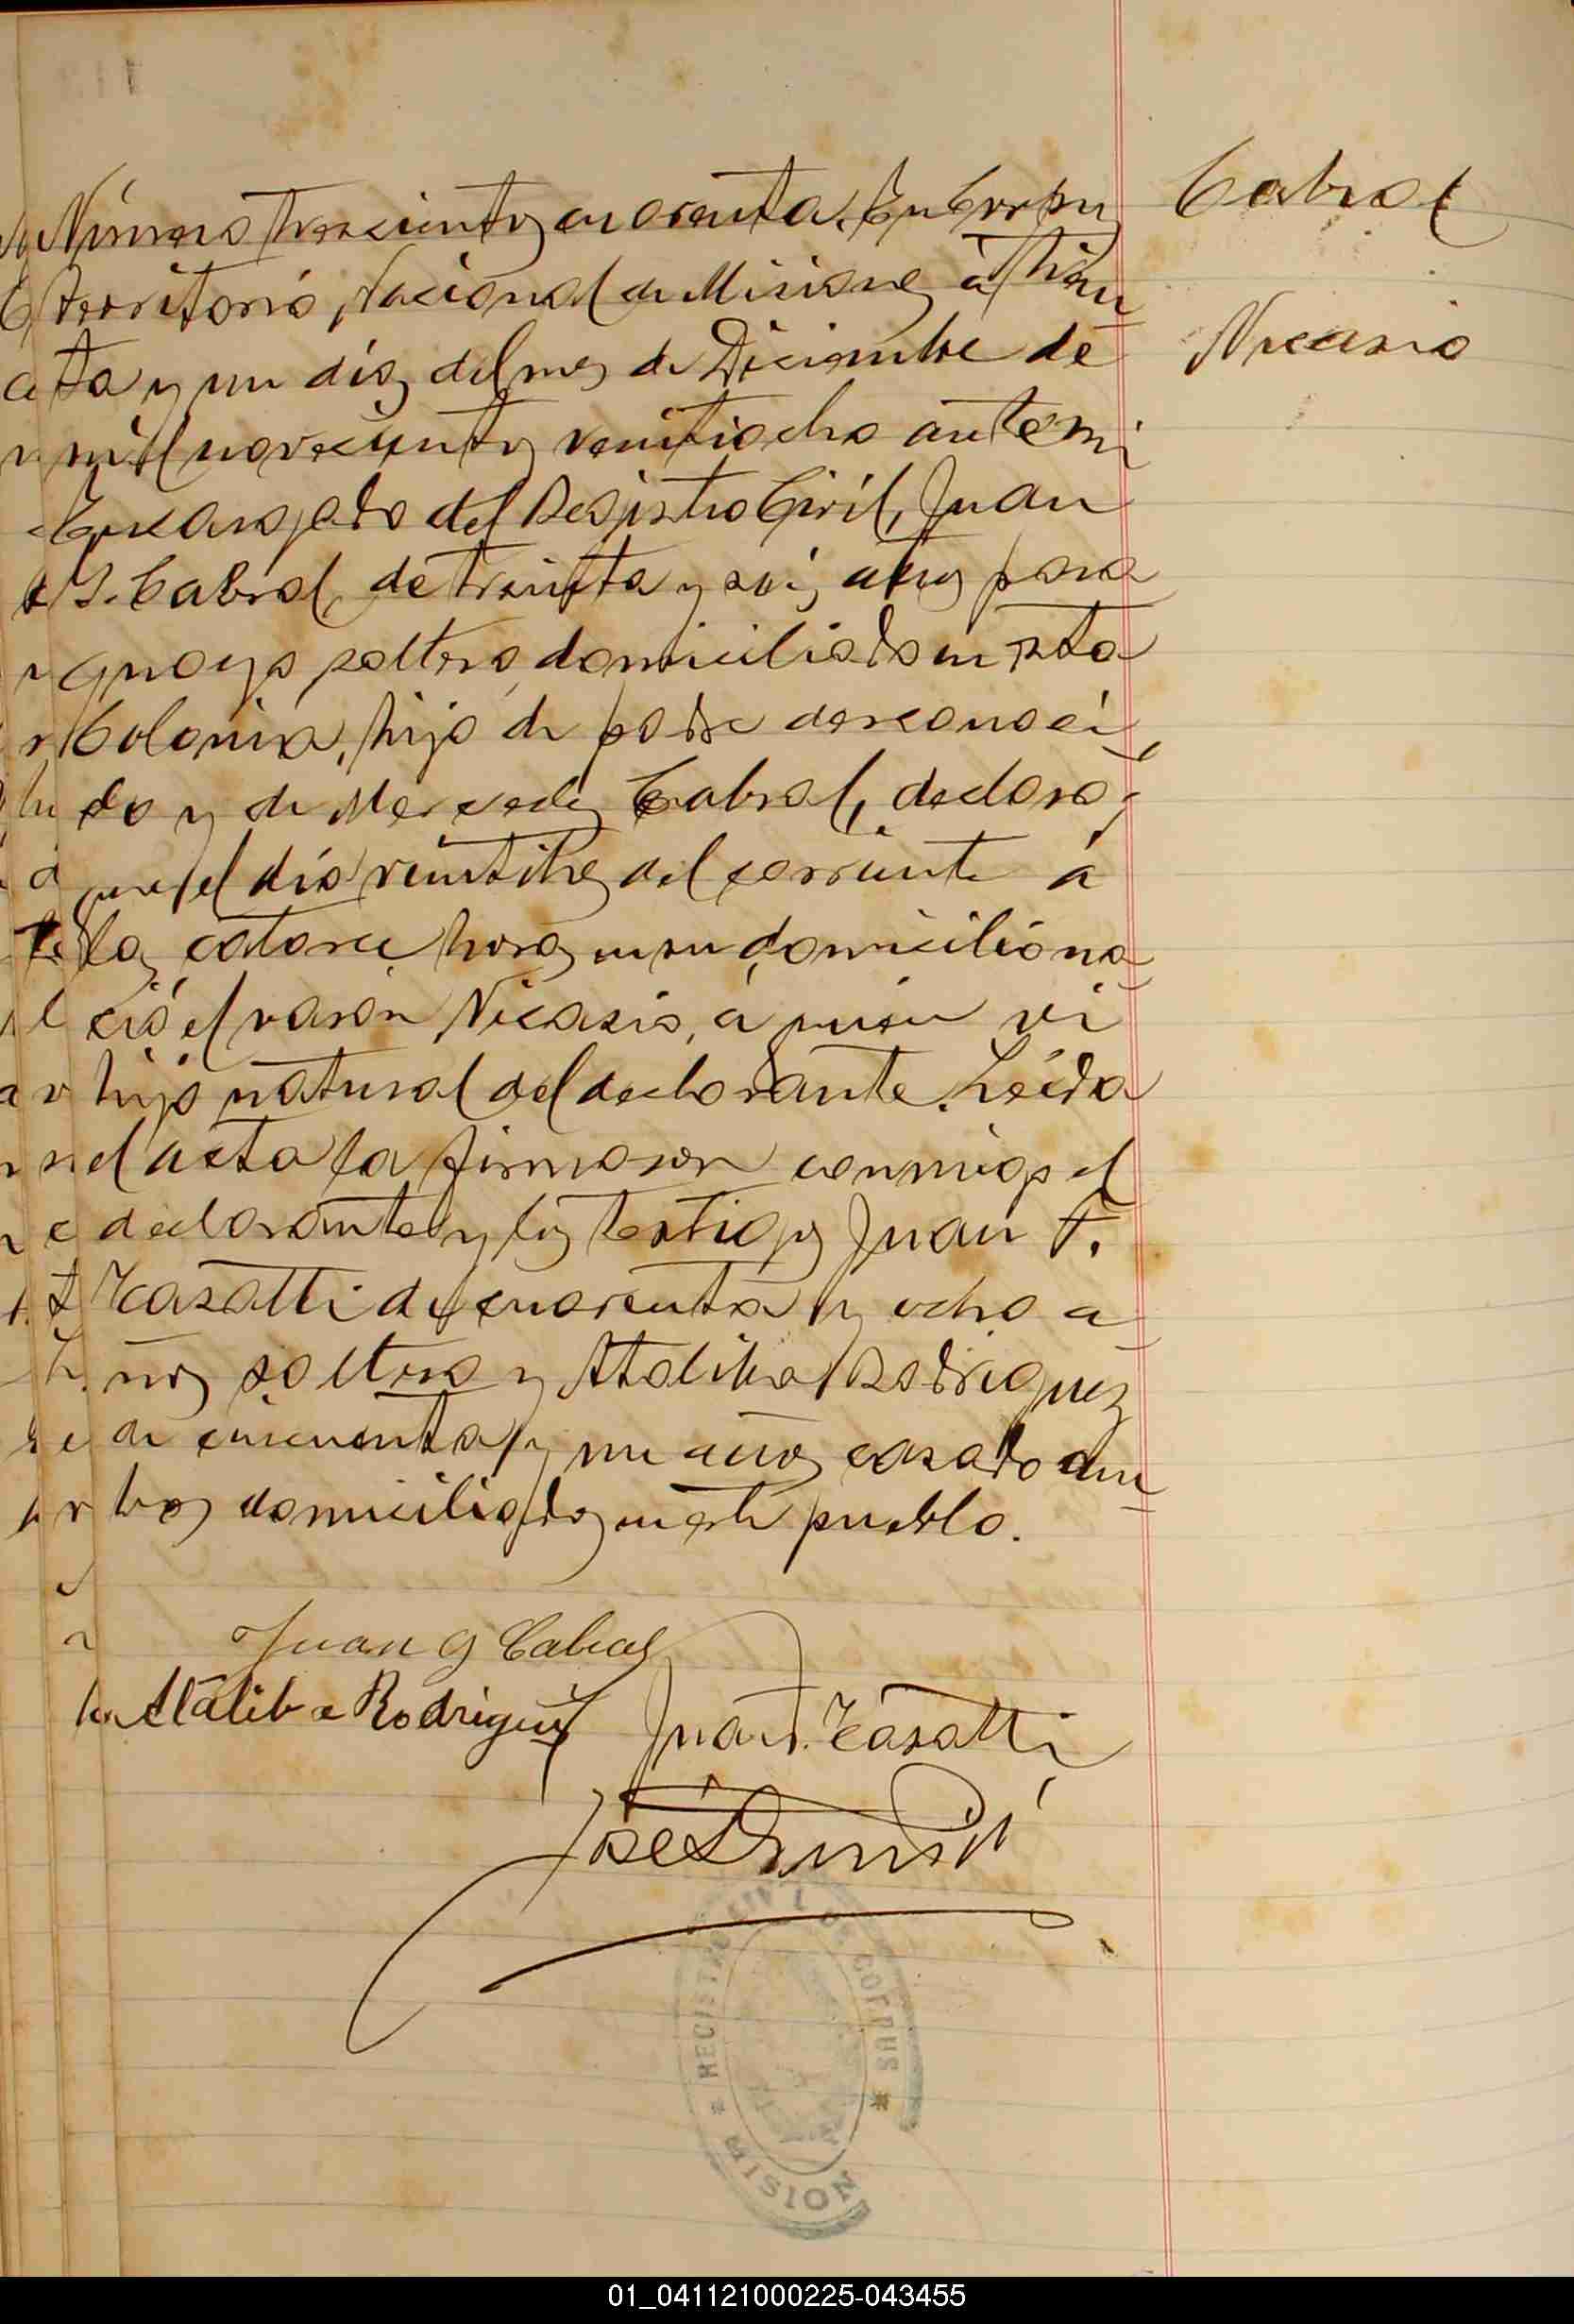 Cabral
Nicasio
Número trescientos cuarenta. En Corpus
Territorio Nacional de Misiones á Trein
ta y un dias del mes de Diciembre de
mil novecientos veintiocho ante mi
Encargado del Registro Civil, Juan
G. Cabral, de treinta y seis años para
guayo soltero, domiciliado en esta
Colonia, hijo de padre desconoci
do y de Mercedes Cabral, declaró:
que el día veintitres del corriente á
las catorce horas en su domicilio na
ció el varón Nicasio, á quien vi
hijo natural del declarante. Leída
el acta la firmaron conmigo el
declarante y los testigos Juan F.
Casatti de cuarenta y ocho a
ños soltero y Ataliba Rodriguez
de cincuenta y un años casado am
bos domiciliados en este pueblo.
Juan G Cabral
Ataliba Rodriguez
Juan F. Casatti
José
REGISTRO CIVIL DE CORPUS
MISION
01_041121000225-043455